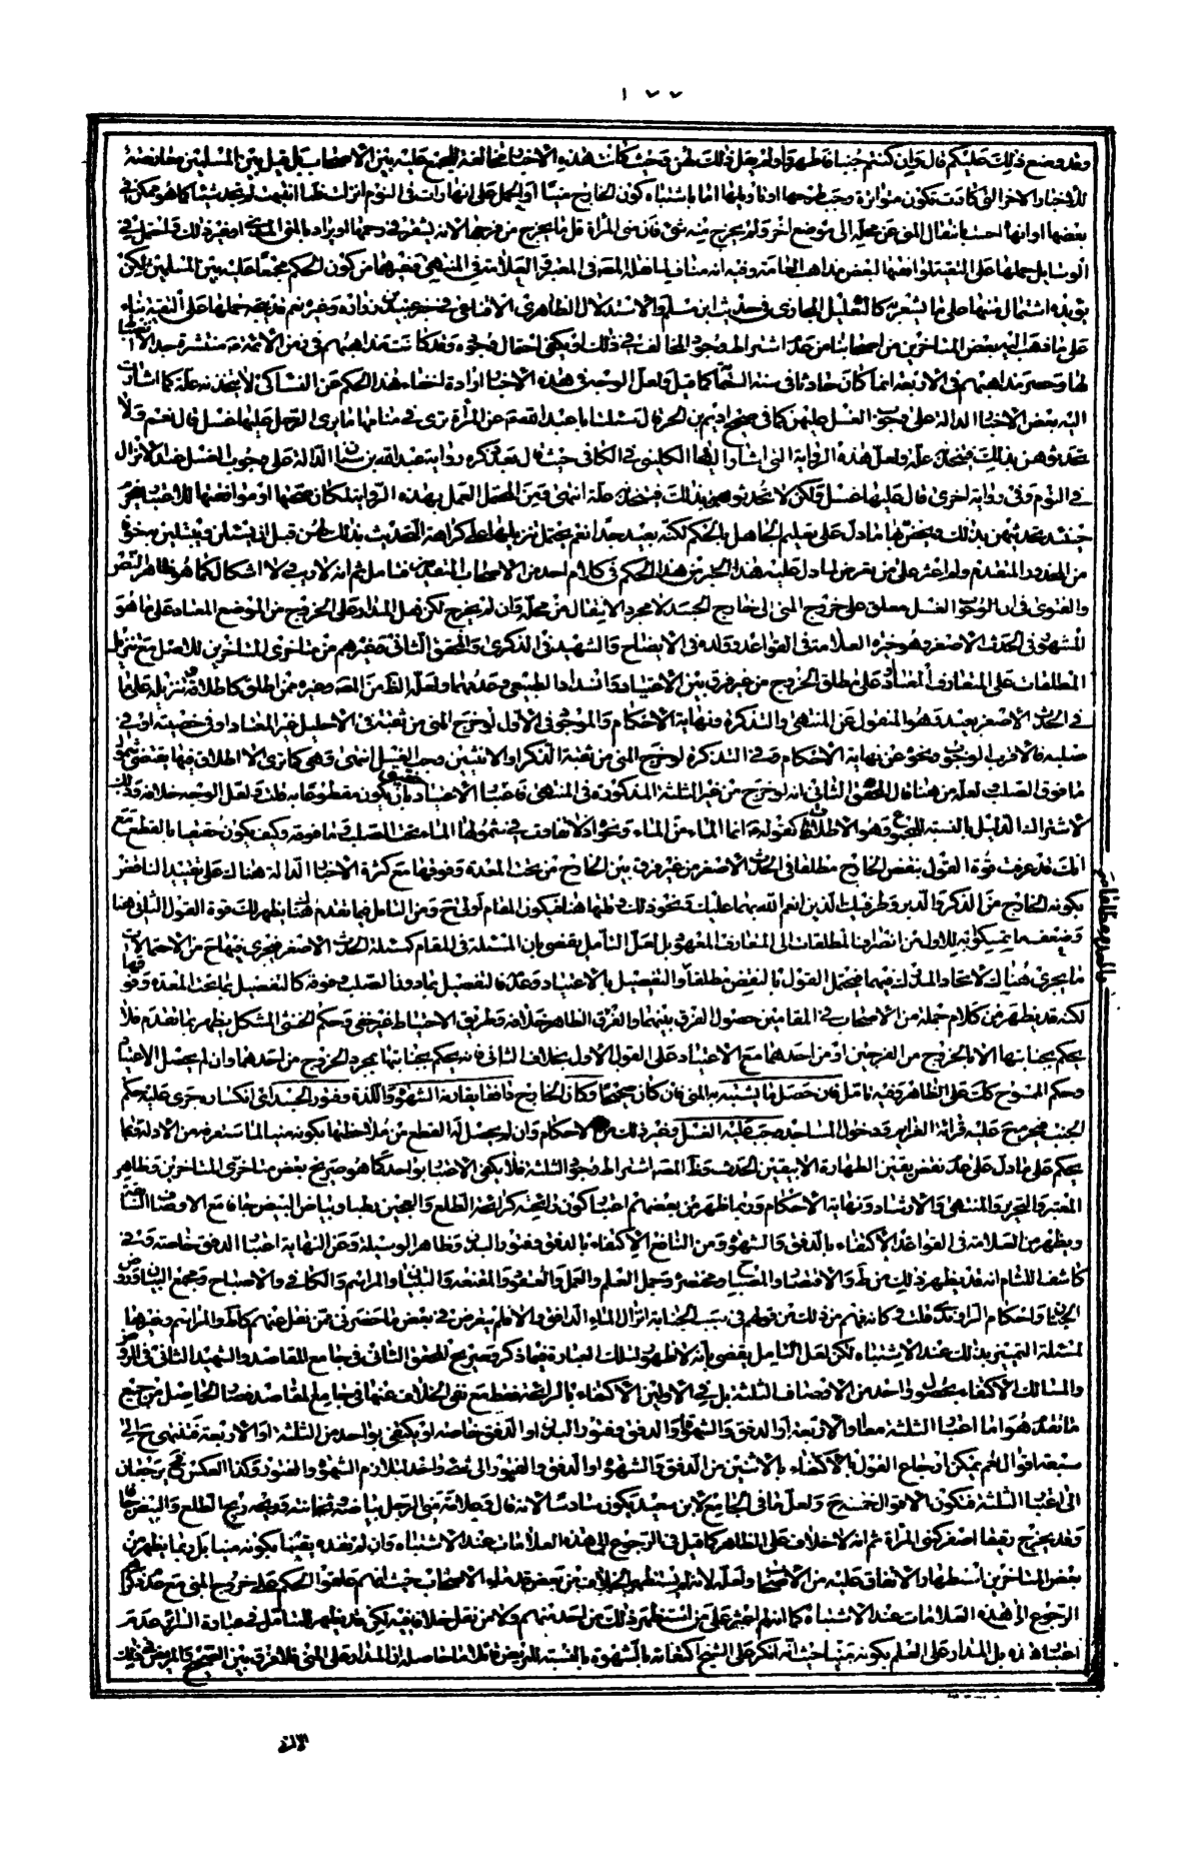 ١٧٧
وقد وضع ذلك عليكم قال وان كنتم جنبا فاطهروا ولم يجعل ذلك لهن وحيث كانت هذه الاخبار مخالفة للمجمع عليه بين الاصحاب بل قيل بين المسلمين معارضة
للأخبار الاخر التي كادت تكون متواترة وجب طرحها او تأويلها اما باشتباه كون الخارج منيا او الحمل على انها رات في النوم انزلت فلما انتبهت لم تجد شيئا كما هو ممكن في
بعضها او انها احست بانتقال المني عن محله الى موضع اخر ولم يخرج منه شئ فان مني المرأة قل ما يخرج من فرجها لانه يستقر في رحمها او يراد بالمني المذي او غير ذلك واحتمل في
الوسائل حملها على التقية لموافقتها لبعض مذاهب العامة وفيه انه مناف لما نقله المصنف في المعتبر والعلامة في المنتهى وغيرهما من كون الحكم مجمعا عليه بين المسلمين لكن
يؤيده اشتمال متنها على ما يشعر به كالتعليل المجازي في حديث ابن مسلم والاستدلال الظاهري الاقناعي في خبر عبيد بن زرارة وغيره نعم قد يتجه حملها على التقية بناء
على ما ذهب اليه بعض المتاخرين من اصحابنا من عدم اشتراط وجود المخالف في ذلك او يكفي احتمال وجوده وقد كانت مذاهبهم في زمن الائمة منتشرة جدا لا
لها وحصر مذاهبهم في الاربعة انما كان حادثا في سنة الستمائة كما قيل ولعل الوجه في هذه الاخبار ارادة اخفاء هذا الحكم عن النساء لئلا يتخذنه علة كما اشارت
اليه بعض الاخبار الدالة على وجوب الغسل عليهن كما في صحيح اديم بن الحر قال سئلت ابا عبد الله عن المرأة ترى في منامها ما يرى الرجل عليها غسل قال نعم ولا
تحدثوهن بذلك فيتخذنه علة ولعل هذه الرواية التي اشار اليها الكليني في الكافي حيث قال بعد ذكره رواية عبد الله بن سنان الدالة على وجوب الغسل عند الانزال
في النوم وفي رواية اخرى قال عليها غسل ولكن لا تحدثوهن بذلك فيتخذنه علة انتهى
من الحدود المتقدم ولم اعثر على من تعرض لما دل عليه هذا الخبر من هذا الحكم في كلام احد من الاصحاب المتقدمين فتامل ثم انه لا ريب ولا اشكال كما هو ظاهر النص
والفتوى في ان وجوب الغسل معلق على خروج المني الى خارج الجسد لا مجرد الانتقال من محله وان لم يخرج لكن هل المدار على الخروج من الموضع المعتاد على ما هو
المشهور في الحدث الاصغر وهو خيرة العلامة في القواعد وولده في الايضاح والشهيد في الذكرى والمحقق الثاني وغيرهم من متاخري المتاخرين للاصل مع تنزيل
المطلقات على المتعارف المعتاد او على مطلق الخروج من غير فرق بين الاعتياد وانسداد الطبيعي وعدمهما ولعله الظاهر من المصنف وغيره ممن اطلق كاطلاقه
في الحدث الاصغر بعيد وهو المنقول عن المنتهى والتذكرة ونهاية الاحكام والموجود في الاول لو خرج المني من ثقبة في الاحليل غير المعتاد او في خصيته او في
صلبه فالاقرب الوجوب ونحوه عن نهاية الاحكام وفي التذكرة لو خرج المني من ثقبة الذكر او الانثيين وجب الغسل انتهى وهي كما ترى لا اطلاق فيها يقتضي شمول
ما فوق الصلب ولعله من هنا قال المحقق الثاني انه لو خرج من غير الثلثة المذكورة في المنتهى فاعتبار الاعتياد حقيق بان يكون مقطوعا به قلت ولعل الوجه خلافه وذلك
لاشتراك الدليل بالنسبة للجميع وهو الاطلاقات كقوله انما الماء من الماء ونحوه اذ لا تفاوت في شمولها الماء تحت الصلب وما فوقه وكيف يكون حقيقا بالقطع مع
انك قد عرفت قوة القول بنقض الخارج مطلقا في الحدث الاصغر من غير فرق بين الخارج من تحت المعدة وفوقها مع كثرة الاخبار الدالة هناك على تقييد الناقض
بكونه الخارج من الذكر والدبر وطرفيك الذين انعم الله بهما عليك ونحو ذلك
وضعف ما يتمسك به للاول من انصراف المطلقات الى المتعارف المعهود بل لعل التأمل يقضي بان المسئلة في المقام كمسئلة الحدث الاصغر فيجري فيها ح من الاحتمالات
ما يجري هناك لاتحاد المدرك فيهما فيحتمل القول بالنقض مطلقا والتفصيل بالاعتياد وعدمه والتفصيل بما دون الصلب وفوقه كالتفصيل بما تحت المعدة وفوقها
لكنه قد يظهر من كلام جملة من الاصحاب في المقامين حصول الفرق بينهما والفرق الظاهر خلافه وطريق الاحتياط غير خفي وحكم الخنثى المشكل يظهر مما تقدم فلا
يحكم بجنابتها الا بالخروج من الفرجين او من احدهما مع الاعتياد على القول الاول بخلاف الثاني فانه يحكم بجنابتها بمجرد الخروج من احدهما وان لم يحصل الاعتياد
وحكم الممسوح كذلك على الظاهر وفيه تامل فان حصل ما يشتبه به المني فان كان صحيحا وكان الخارج دافقا يقارنه الشهوة واللذة وفتور الجسد اي انكساره جرى عليه حكم
الجنب فيحرم ح عليه قراءة العزائم ودخول المساجد ويجب عليه الغسل وغير ذلك من الاحكام وان لم يحصل له القطع من ملاحظتها بكونه منيا لما ستعرفه من الادلة فيما
يحكم على ما دل على عدم نقض يقين الطهارة الا بيقين الحدث وظاهر المصنف اشتراط وجود الثلثة فلا يكفي الاختبار بواحد كما هو صريح بعض متاخري المتاخرين وظاهر
المعتبر والتحرير والمنتهى والارشاد ونهاية الاحكام وربما ظهر من بعضهم اعتبار كون رائحته كرائحة الطلع والعجين رطبا وبياض البيض جافا مع الاوصاف الثلثة
ويظهر من العلامة في القواعد الاكتفاء بالدفق والشهوة ومن النافع الاكتفاء بالدفق وفتور البدن وظاهر الوسيلة وعن النهاية اعتبار الدفق خاصة وفي
كاشف اللثام انه قد يظهر ذلك من ط والاقتصاد والمصباح ومختصره وجمل العلم والعمل والعقود والمقنعة والتبيان والمراسم والكافي والاصباح ومجمع البيان وروض
الجنان واحكام الراوندي قلت وكانه فهم من ذلك من قولهم في سبب الجنابة انزال الماء الدافق والا فلم يتعرض في بعض ما حضرني ممن نقل عنهم كالجمل والمراسم وغيرهما
لمسئلة التمييز بذلك عند الاشتباه لكن لعل التامل يقضي بانه لا ظهور لتلك العبارة فيما ذكر وصريح المحقق الثاني في جامع المقاصد والشهيد الثاني في الروض
والمسالك الاكتفاء بحصول واحد من الاوصاف الثلثة بل في الاولين الاكتفاء بالرائحة فقط مع نفي الخلاف عنها في جامع المقاصد فصار الحاصل من جميع
ما تقدم هو اما اعتبار الثلثة معا او الاربعة او الدفق والشهوة او الدفق وفتور البدن او الدفق خاصة او يكتفى بواحد من الثلثة او الاربعة فتنتهي ح الى
سبعة اقوال نعم يمكن ارجاع القول بالاكتفاء بالاثنين من الدفق والشهوة او الدفق والفتور الى تعدد واحد لتلازم الشهوة والفتور وكذا العكس فح يرجعان
الى اعتبار الثلثة فتكون الاقوال خمسة ح ولعل ما في الجامع لابن سعيد يكون سادسا لانه قال وعلامة مني الرجل بياضه وثخانته وريحه ريح الطلع والبيض جافا
وقد يخرج رقيقا اصفر كمني المرأة ثم انه لا خلاف على الظاهر كما قيل في الرجوع الى هذه العلامات عند الاشتباه وان لم تفده يقينا بكونه منيا بل ربما يظهر من
بعض المتاخرين استظهار الاتفاق عليه من الاصحاب
الرجوع الى هذه العلامات عند الاشتباه كما انهم
اعتبار هذه بل المدار على العلم بكونه منيا حيث انه انكر على الشيخ اكتفائه بالشهوة بالنسبة للمريض قائلا ما حاصله ان المدار على المني فلا فرق بين الصحيح والمريض في ذلك
الا انه